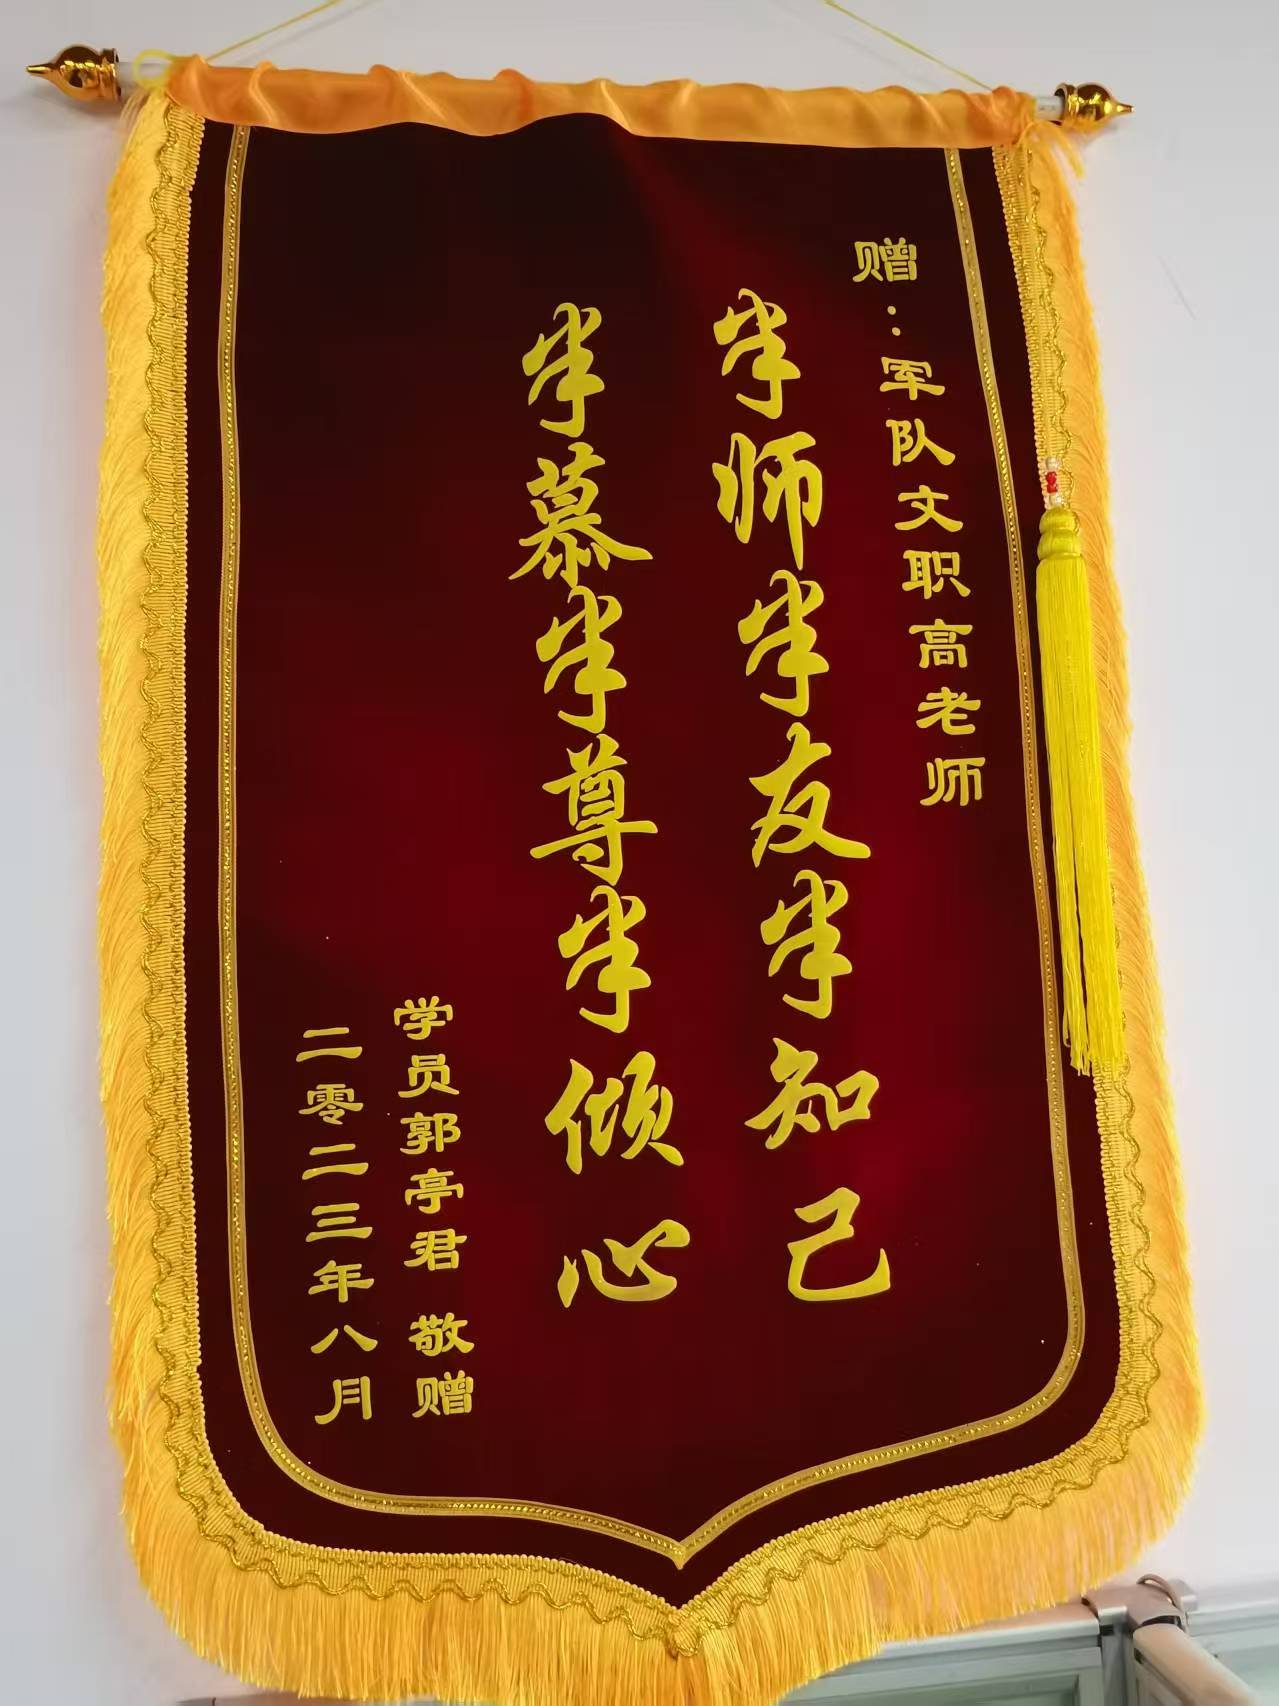 赠：军队文职高老师
半师半友半知己
半慕半尊半倾心
学员郭亭君 敬赠
二零二三年八月